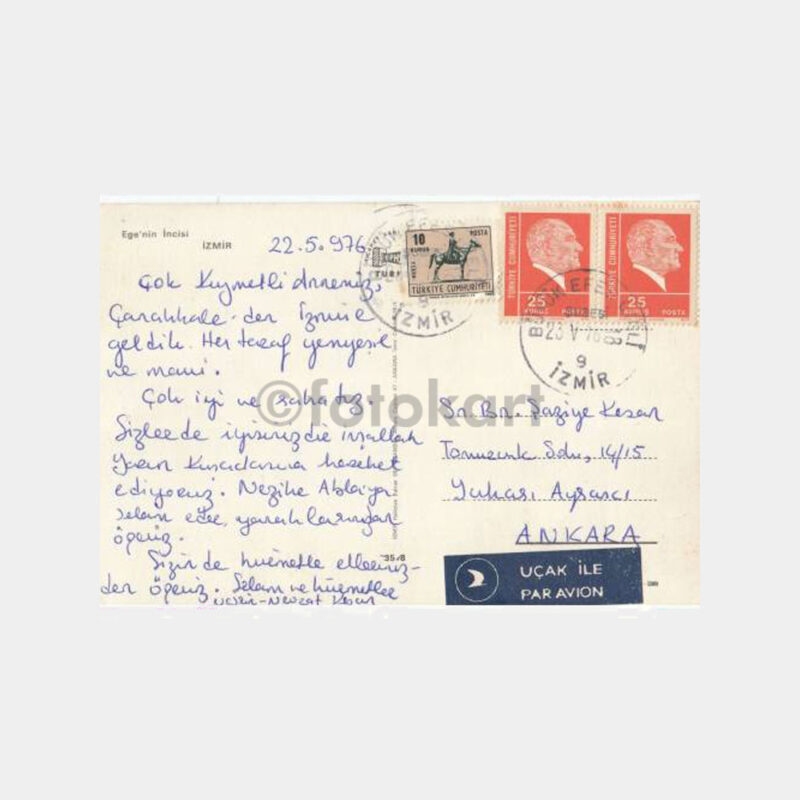 Ege'nin İncisi
İZMİR
22.5.976
Çok Kıymetli Anneniz,
Çanakkale den İzmire
geldik. Her taraf yemyeşil
ve mavi.
Çok iyi ve rahatız.
Sizlerde iyisinizdir inşallah
Yarın Kuşadasına hareket
ediyoruz. Nezihe Ablaya
selam eder, yanaklarından
öperiz.
Sizin de hürmetle elleriniz-
den öperiz. Selam ve hürmetler
Nevzat Kesar
10
KURUŞ
POSTA
TÜRKİYE CUMHURİYETİ
İZMİR
TÜRKİYE CUMHURİYETİ
25
KURUŞ
POSTA
TÜRKİYE CUMHURİYETİ
25
KURUŞ
POSTA
BÜYÜK EFES
23 V 76
9
İZMİR
©fotokart
Sn. Br. Şaziye Kesar
Sok, 14/15
Yukarı Ayrancı
ANKARA
UÇAK İLE
PAR AVION